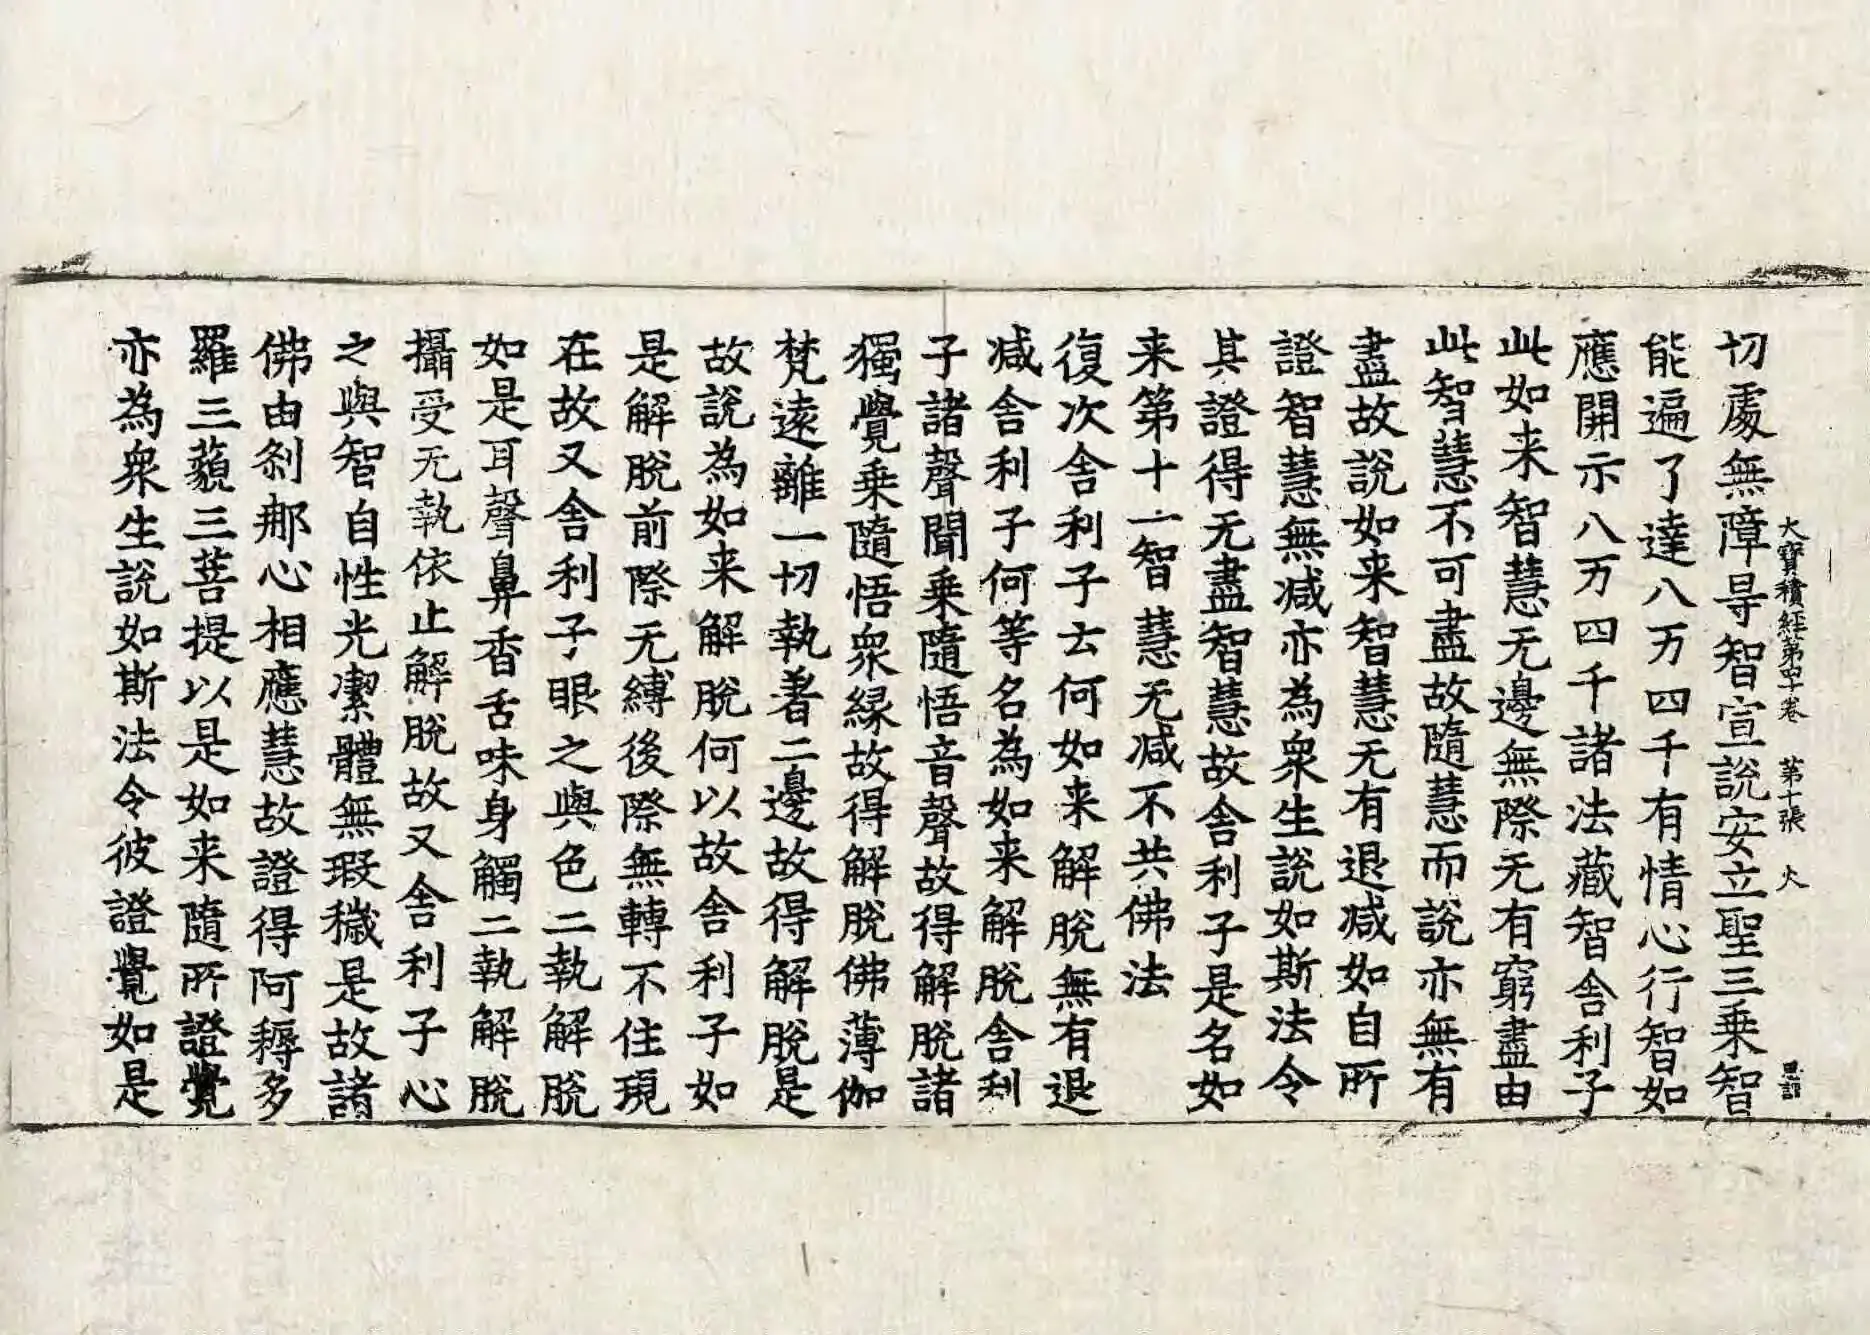 大寶積經第四十卷 第十張 火
思詔
切處無障㝵智宣說安立聖三乗智
能遍了達八万四千有情心行智如
應開示八万四千諸法藏智舎利子
此如来智慧无邊無際无有窮盡由
此智慧不可盡故隨慧而說亦無有
盡故說如来智慧无有退减如自所
證智慧無减亦為衆生說如斯法令
其證得无盡智慧故舎利子是名如
来第十一智慧无减不共佛法
復次舎利子云何如来解脫無有退
减舎利子何等名為如来解脫舎利
子諸聲聞乗隨悟音聲故得解脫諸
獨覺乗隨悟衆緣故得解脫佛薄伽
梵遠離一切執著二邊故得解脫是
故說為如来解脫何以故舎利子如
是解脫前際无縛後際無轉不住現
在故又舎利子眼之與色二執解脫
如是耳聲鼻香舌味身觸二執解脫
攝受无執依止解脫故又舎利子心
之與智自性光潔體無瑕穢是故諸
佛由刹那心相應慧故證得阿耨多
羅三藐三菩提以是如来隨所證覺
亦為衆生說如斯法令彼證覺如是